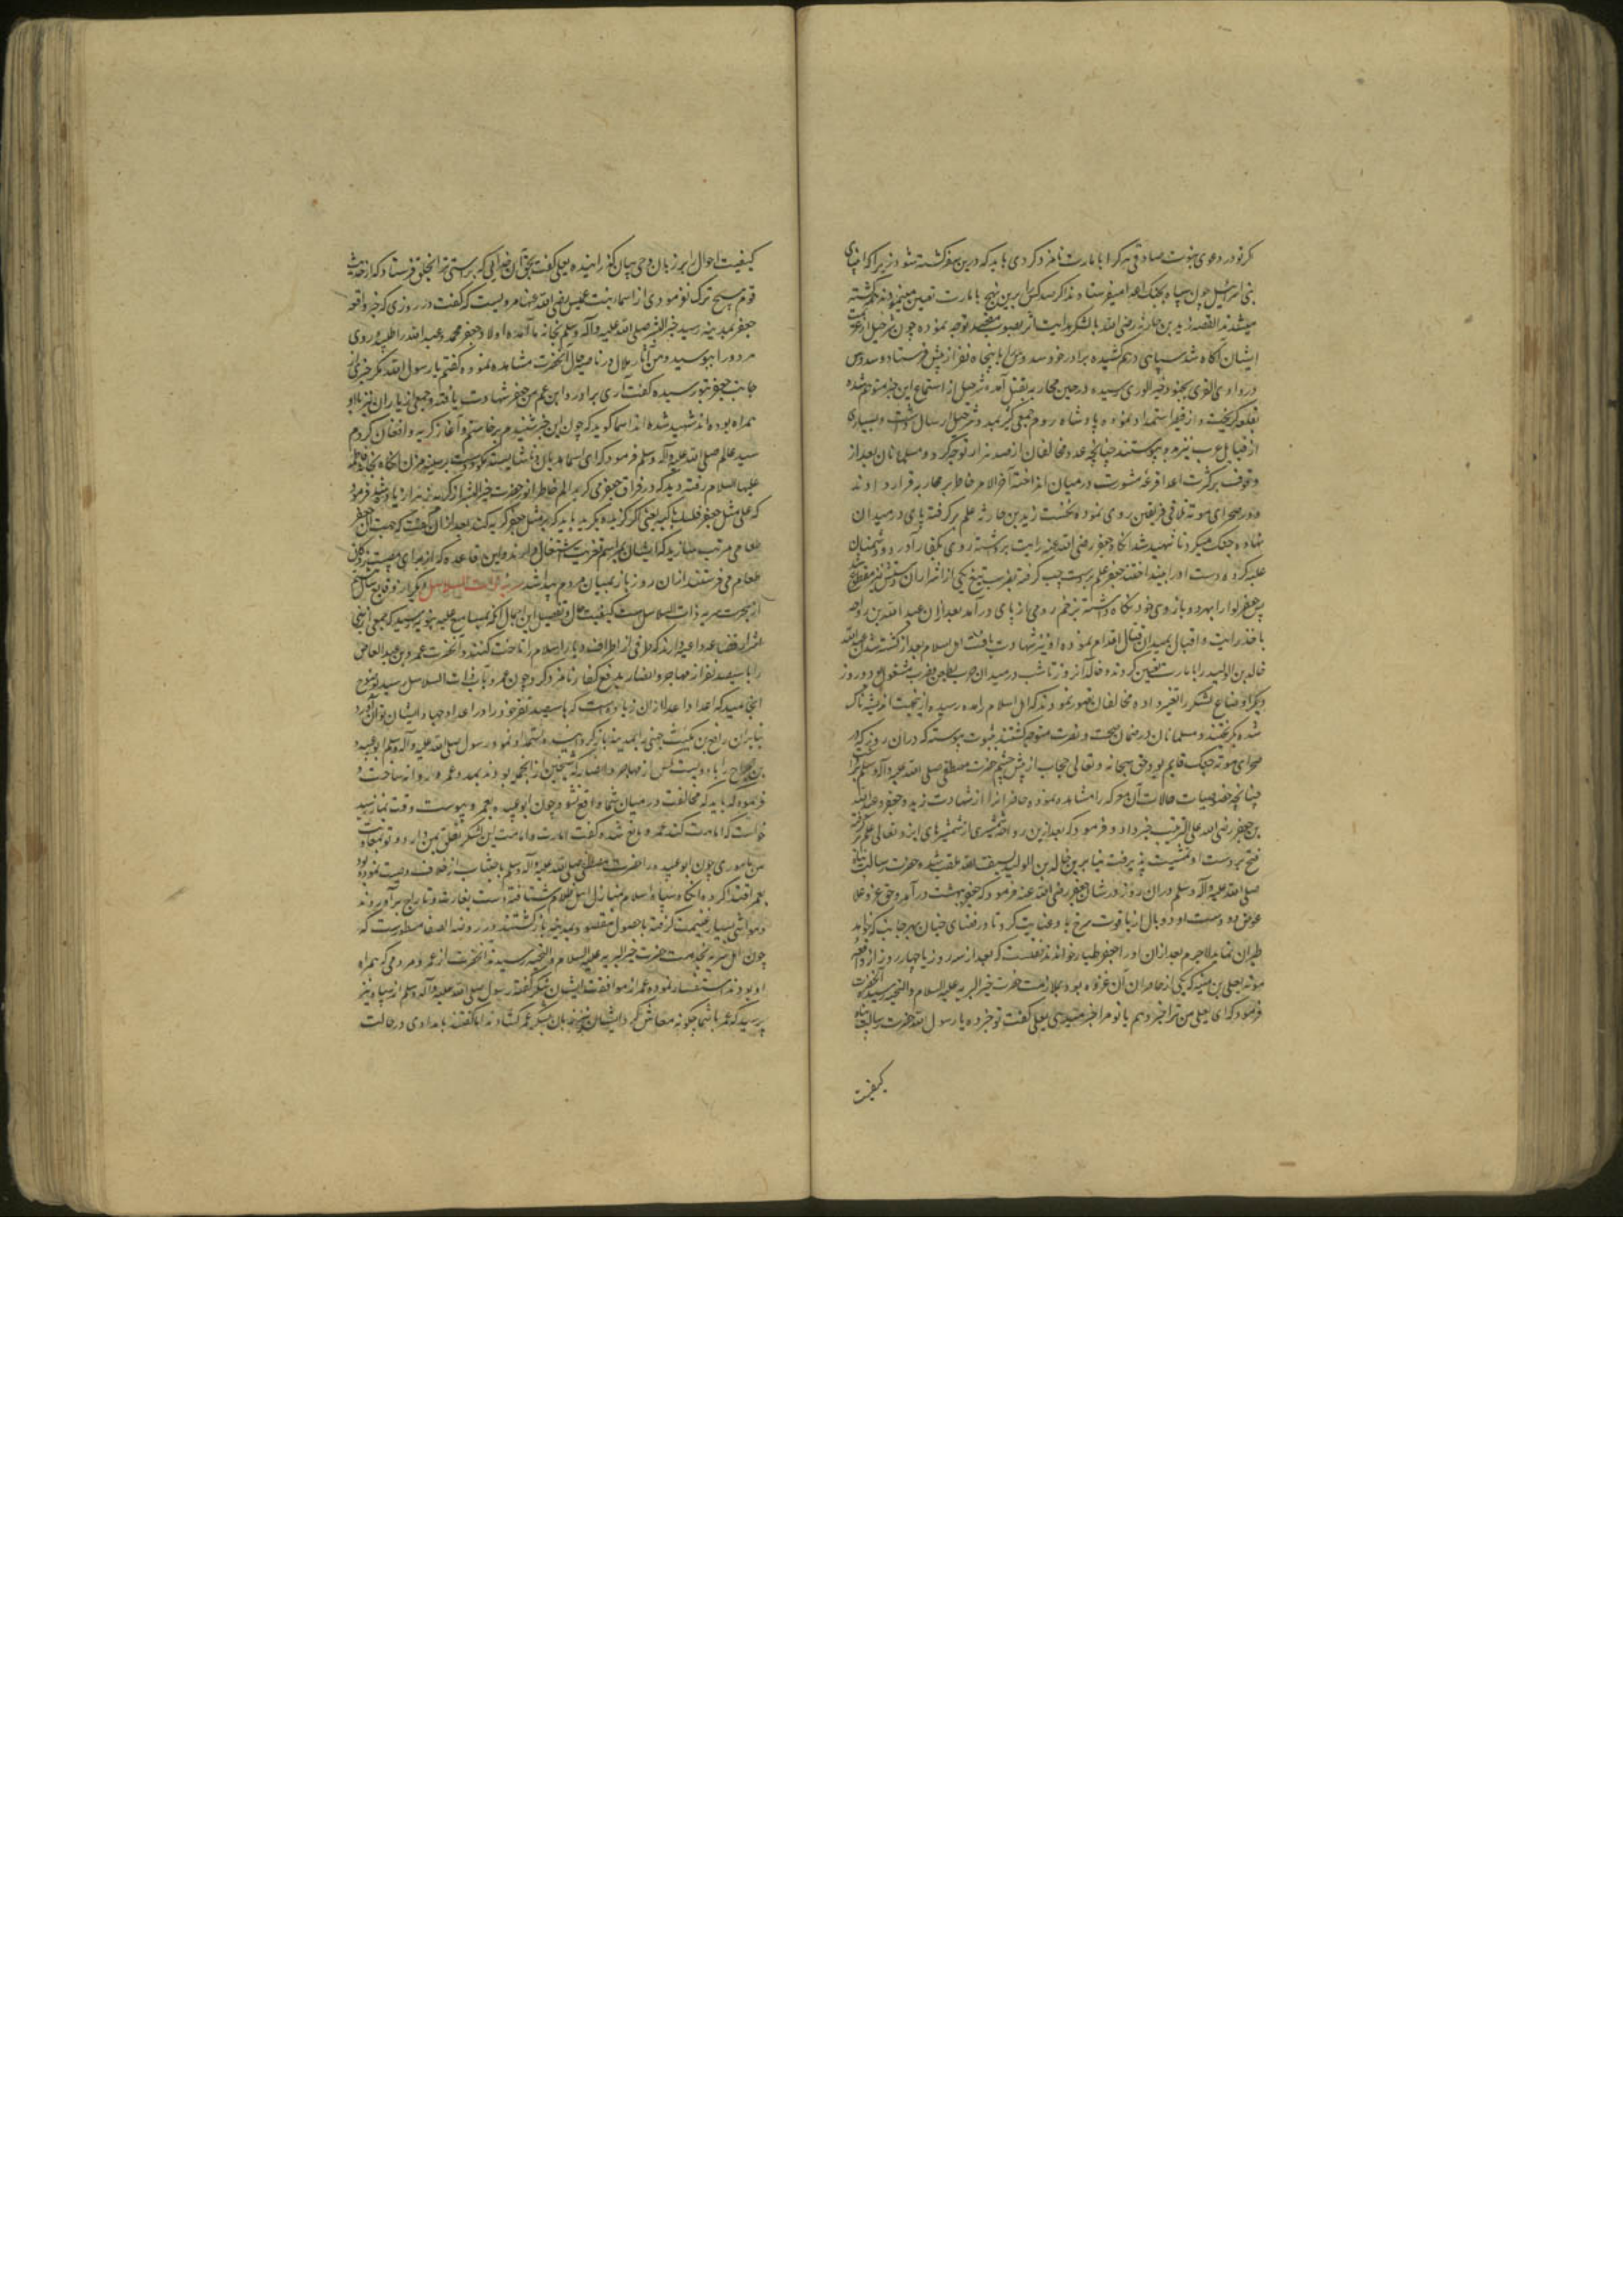 که تو در دعوی نبوت صادقی هرکرا بامارت نامزد کردی باید که درین سفر کشته شود زیرا که انبیای
بنی اسرائیل چون سپاه بجنک اعدا میفرستادند اگر صد کس را برین نهج بامارت تعیین مینمودند همه کشته
میشدند القصه زید بن حارثه رضی الله با لشکر هدایت اثر بصوب مقصد توجه نموده چون شرحبیل از
ایشان آگاه شد سپاهی درهم کشیده برادر خود سدوس را با پنجاه نفر از پیش فرستاد و سدوس
در وادی القری بجنود خیر الوری رسیده در حین محاربه بقتل آمد شرحبیل از استماع این خبر متوهم شده
بقلعه کریخت و از قیصر استمداد نموده پادشاه روم جمعی کثیر بمدد شرحبیل ارسال داشت و بسیاری
از قبایل عرب نیز بدو پیوستند چنانچه عدد مخالفان از صد هزار تجاوز کرد و مسلمانان بعد از
وقوف بر کثرت اعدا قرعه مشورت در میان انداختند آخر الامر خاطر بر محاربه قرار دادند
و در صحرای موته تلاقی فریقین روی نموده نخست زید بن حارثه علم برکرفته پای در میدان
نهاد و جنک میکرد تا شهید شد انکاه جعفر رضی الله عنه رایت برداشته روی بکفار آورد و دشمنان
غلبه کرده دست او را بینداختند جعفر علم بدست چپ کرفته بضرب تیغ یکی از اشرار آن دستش نیز مقطوع
پس جعفر لوا را بهر دو بازوی خود نگاه داشته بزخم رومی از پای در آمد بعد ازان عبد الله بن رواحه
باخذ رایت و اقبال بمیدان قتال اقدام نموده او نیز شهادت یافت اهل اسلام بعد از کشته شدن عبد الله
خالد بن الولید را بامارت تعیین کردند و خالد آنروز تا شب در میدان حرب بطعن و ضرب مشغول بود و روز
دیکر اوضاع لشکر را تغییر داده مخالفان تصور نمودند که اهل اسلام را مدد رسیده ازین جهت اندیشه ناک
شده بکریختند و مسلمانان در ضمان صحت و نصرت متوجه کشتند بثبوت پیوسته که دران روز که در
صحرای موته جنک قایم بود حق سبحانه و تعالی حجاب از پیش چشم حضرت مصطفی صلی الله علیه و آله وسلم
چنانچه خصوصیات حالات آن معرکه را مشاهده نمود و حاضرانرا از شهادت زید و جعفر و عبد الله
بن جعفر رضی الله علی الترتیب خبر داد و فرمود که بعد ازین رواحه شمشیری از شمشیرهای ایزد تعالی علم کرفته
فتح بر دست او تمشیت پذیرفت بنا برین خالد بن الولید بسیف الله ملقب شد و حضرت رسالت پناه
صلی الله علیه و آله وسلم دران روز در شان جعفر رضی الله عنه فرمود که جعفر بهشت در آمد و حق عز و علا
عوض دو دست او دو بال از یاقوت سرخ باو عنایت کرد تا در فضای جنان بهر جانب که خواهد
طیران نماید لاجرم بعد ازان او را جعفر طیار خواندند نقلست که بعد از سه روز یا چهار روز از واقعه
موته یعلی بن منیه که یکی از حاضران آن غزوه بود بملازمت حضرت خیر البریه علیه السلام والتحیه رسید آنحضرت
فرمود که ای یعلی من ترا خبر دهم یا تو مرا خبر میدهی یعلی کفت تو خبر ده یا رسول الله حضرت رسالت پناه
کیفیت
کیفیت احوال را بر زبان وحی بیان کذرانیده یعلی کفت بحق آن خدائی که براستی ترا بخلق فرستاد که از حدیث
قوم هیچ ترک ننمودی از اسماء بنت عمیس رضی الله عنها مرویست که کفت در روزی که خبر واقعه
جعفر بمدینه رسید خیر البشر صلی الله علیه و آله وسلم بخانه ما آمده اولاد جعفر محمد و عبد الله را طلبید و روی
هر دو را ببوسید و من آثار ملال در ناصیه حال آنحضرت مشاهده نموده کفتم یا رسول الله مکر خبری از
جانب جعفر بتو رسیده کفت آری برادر و ابن عم من جعفر شهادت یافته و جمعی از یاران نیز با او
همراه بوده اند شهید شده اند اسما کوید که چون این خبر شنیدم برخاستم و آغاز کریه و افغان کردم
سید عالم صلی الله علیه و آله وسلم فرمود که ای اسما هذیان و ناشایسته مکو و دست بر سینه مزن انکاه بخانه فاطمه
علیها السلام رفته دید که در فراق جعفر می کرید الم خاطر انور حضرت خیر البشر از کریه زهرا زیاده شد فرمود
که علی مثل جعفر فلیبک باکیة یعنی اکر کرینده بکرید باید که بر مثل جعفر کریه کند بعد ازان کفت که جهت آل جعفر
طعامی مرتب سازید که ایشان بمراسم تعزیت اشتغال دارند و این قاعده که از برای مصیبت زدکان
طعام می فرستند ازان روز باز بمیان مردم پیدا شد سریه ذات السلاسل دیکر از وقایع سال هشتم
از هجرت سریه ذات السلاسل ست کیفیت حال و تفصیل این اجمال آنکه بمسامع علیه نبویه رسید که جمعی از بنی
اشرار قضاعه داعیه دارند که بعضی از اطراف دیار اسلام را تاخت کنند و آنحضرت عمرو بن العاص
را با سیصد نفر از مهاجر و انصار بدفع کفار نامزد کرد و چون عمرو بآب ذات السلاسل رسید بوضوح
انجامید که اعداد اعدا ازان زیاده ست که با سیصد نفر خود را در اعداد جهاد ایشان توان آورد
بنابران رافع بن مکیث جهنی را بمدینه باز کردانیده استمداد نمود رسول صلی الله علیه و آله وسلم ابو عبیده
بن جراح را با دویست کس از مهاجر و انصار که شیخین از انجمله بودند بمدد عمرو روانه ساخت و
فرمود که باید که مخالفت در میان شما واقع نشود چون ابو عبیده بعمرو پیوست وقت نماز رسید
خواست که امامت کند عمرو مانع شد و کفت امارت و امامت این لشکر تعلق بمن دارد و تو بمعاونت
من ماموری چون ابو عبیده را حضرت مصطفی صلی الله علیه و آله وسلم باجتناب از خلاف وصیت نموده بود
بعمرو اقتدا کرد و انکاه سپاه اسلام بمنازل اهل ظلام شتافته دست بغارت و تاراج برآوردند
و مواشی بسیار غنیمت کرفته با حصول مقصود بمدینه بازکشتند و در روضة الصفا مسطورست که
چون اهل سریه بخدمت حضرت خیر البریه علیه السلام والتحیه رسیدند آنحضرت از عمرو و مردمی که همراه
او بودند استفسار نموده عمرو از موافقت ایشان شکر کفته رسول صلی الله علیه و آله وسلم از سپاه نیز
پرسید که عمرو با شما چکونه معاش کرد ایشان نیز زبان بشکر عمرو کشادند اما کفتند بامدادی در حالت